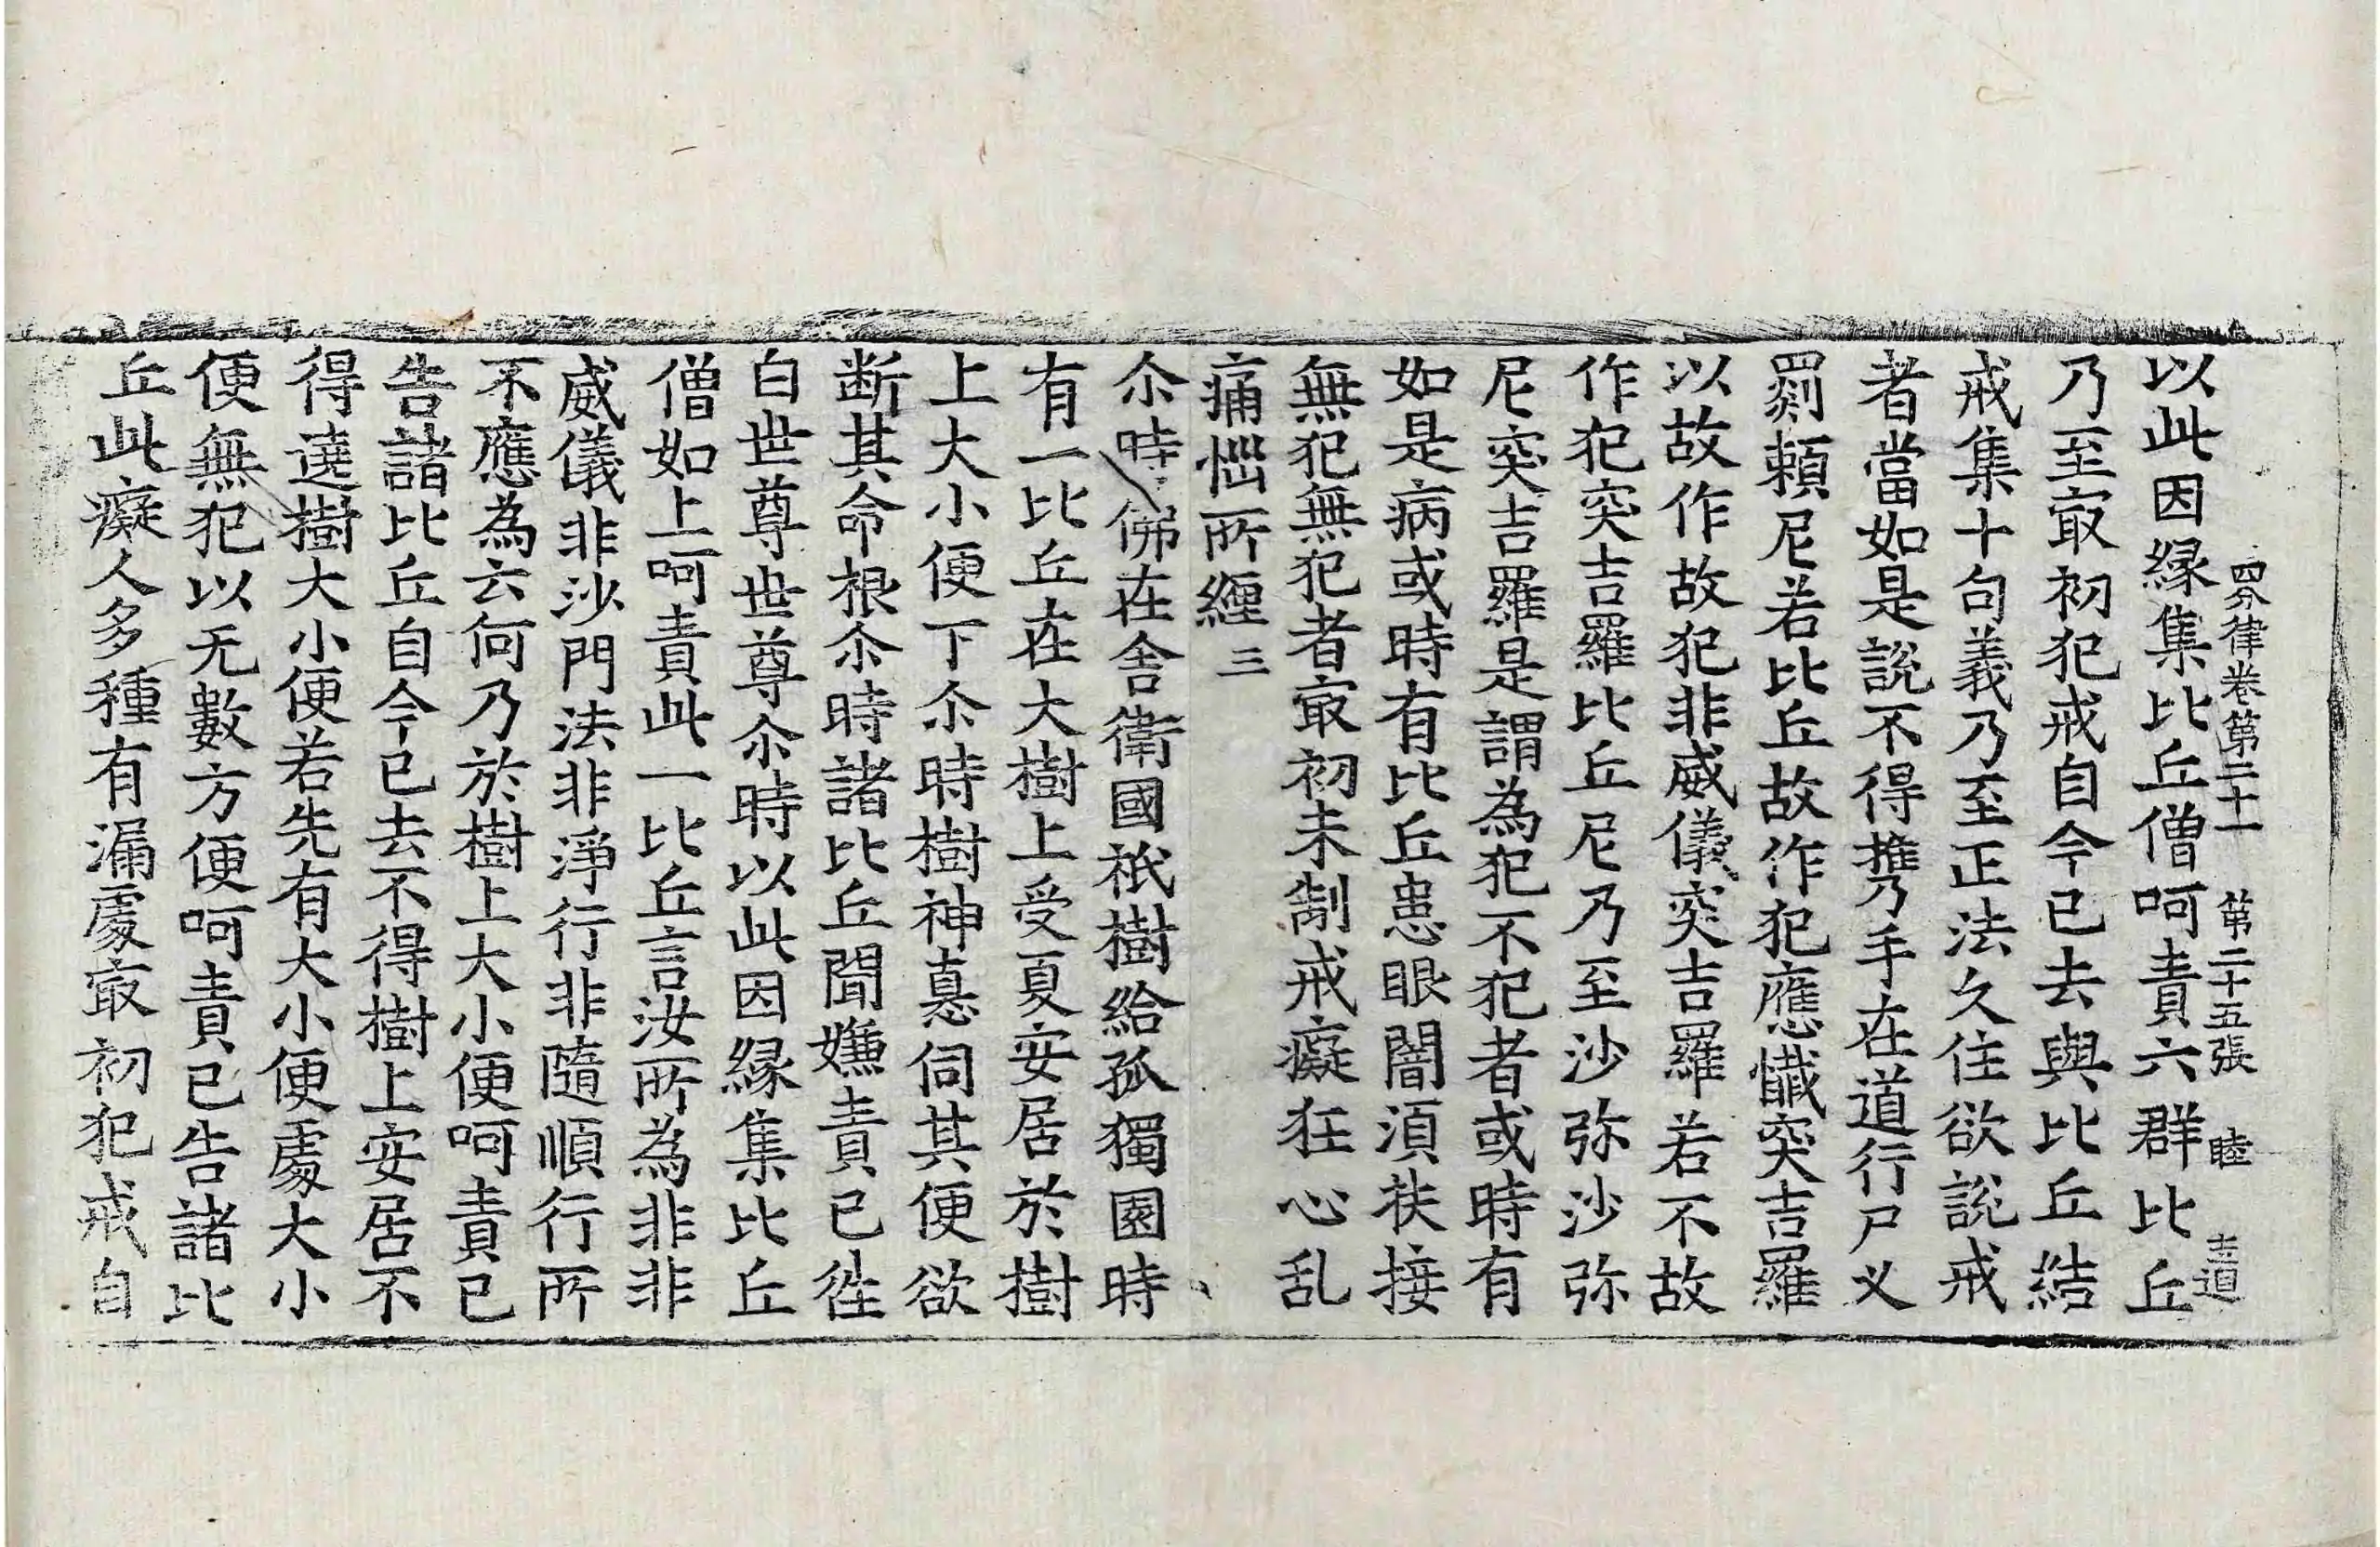 四分律卷第二十一 第二十五張 睦 道
以此因緣集比丘僧呵責六群比丘
乃至㝡初犯戒自今已去與比丘結
戒集十句義乃至正法久住欲說戒
者當如是說不得擕手在道行尸叉
罽賴尼若比丘故作犯應懺突吉羅
以故作故犯非威儀突吉羅若不故
作犯突吉羅比丘尼乃至沙弥沙弥
尼突吉羅是謂為犯不犯者或時有
如是病或時有比丘患眼闇湏扶接
無犯無犯者㝡初未制戒癡狂心乱
痛惱所纏三
尒時佛在舍衛國祇樹給孤獨園時
有一比丘在大樹上受夏安居於樹
上大小便下尒時樹神恚伺其便欲
断其命根尒時諸比丘聞嫌責已徃
白世尊世尊尒時以此因緣集比丘
僧如上呵責此一比丘言汝所為非非
威儀非沙門法非淨行非隨順行所
不應為云何乃於樹上大小便呵責已
告諸比丘自今已去不得樹上安居不
得遶樹大小便若先有大小便處大小
便無犯以无數方便呵責已告諸比
丘此癡人多種有漏處㝡初犯戒自